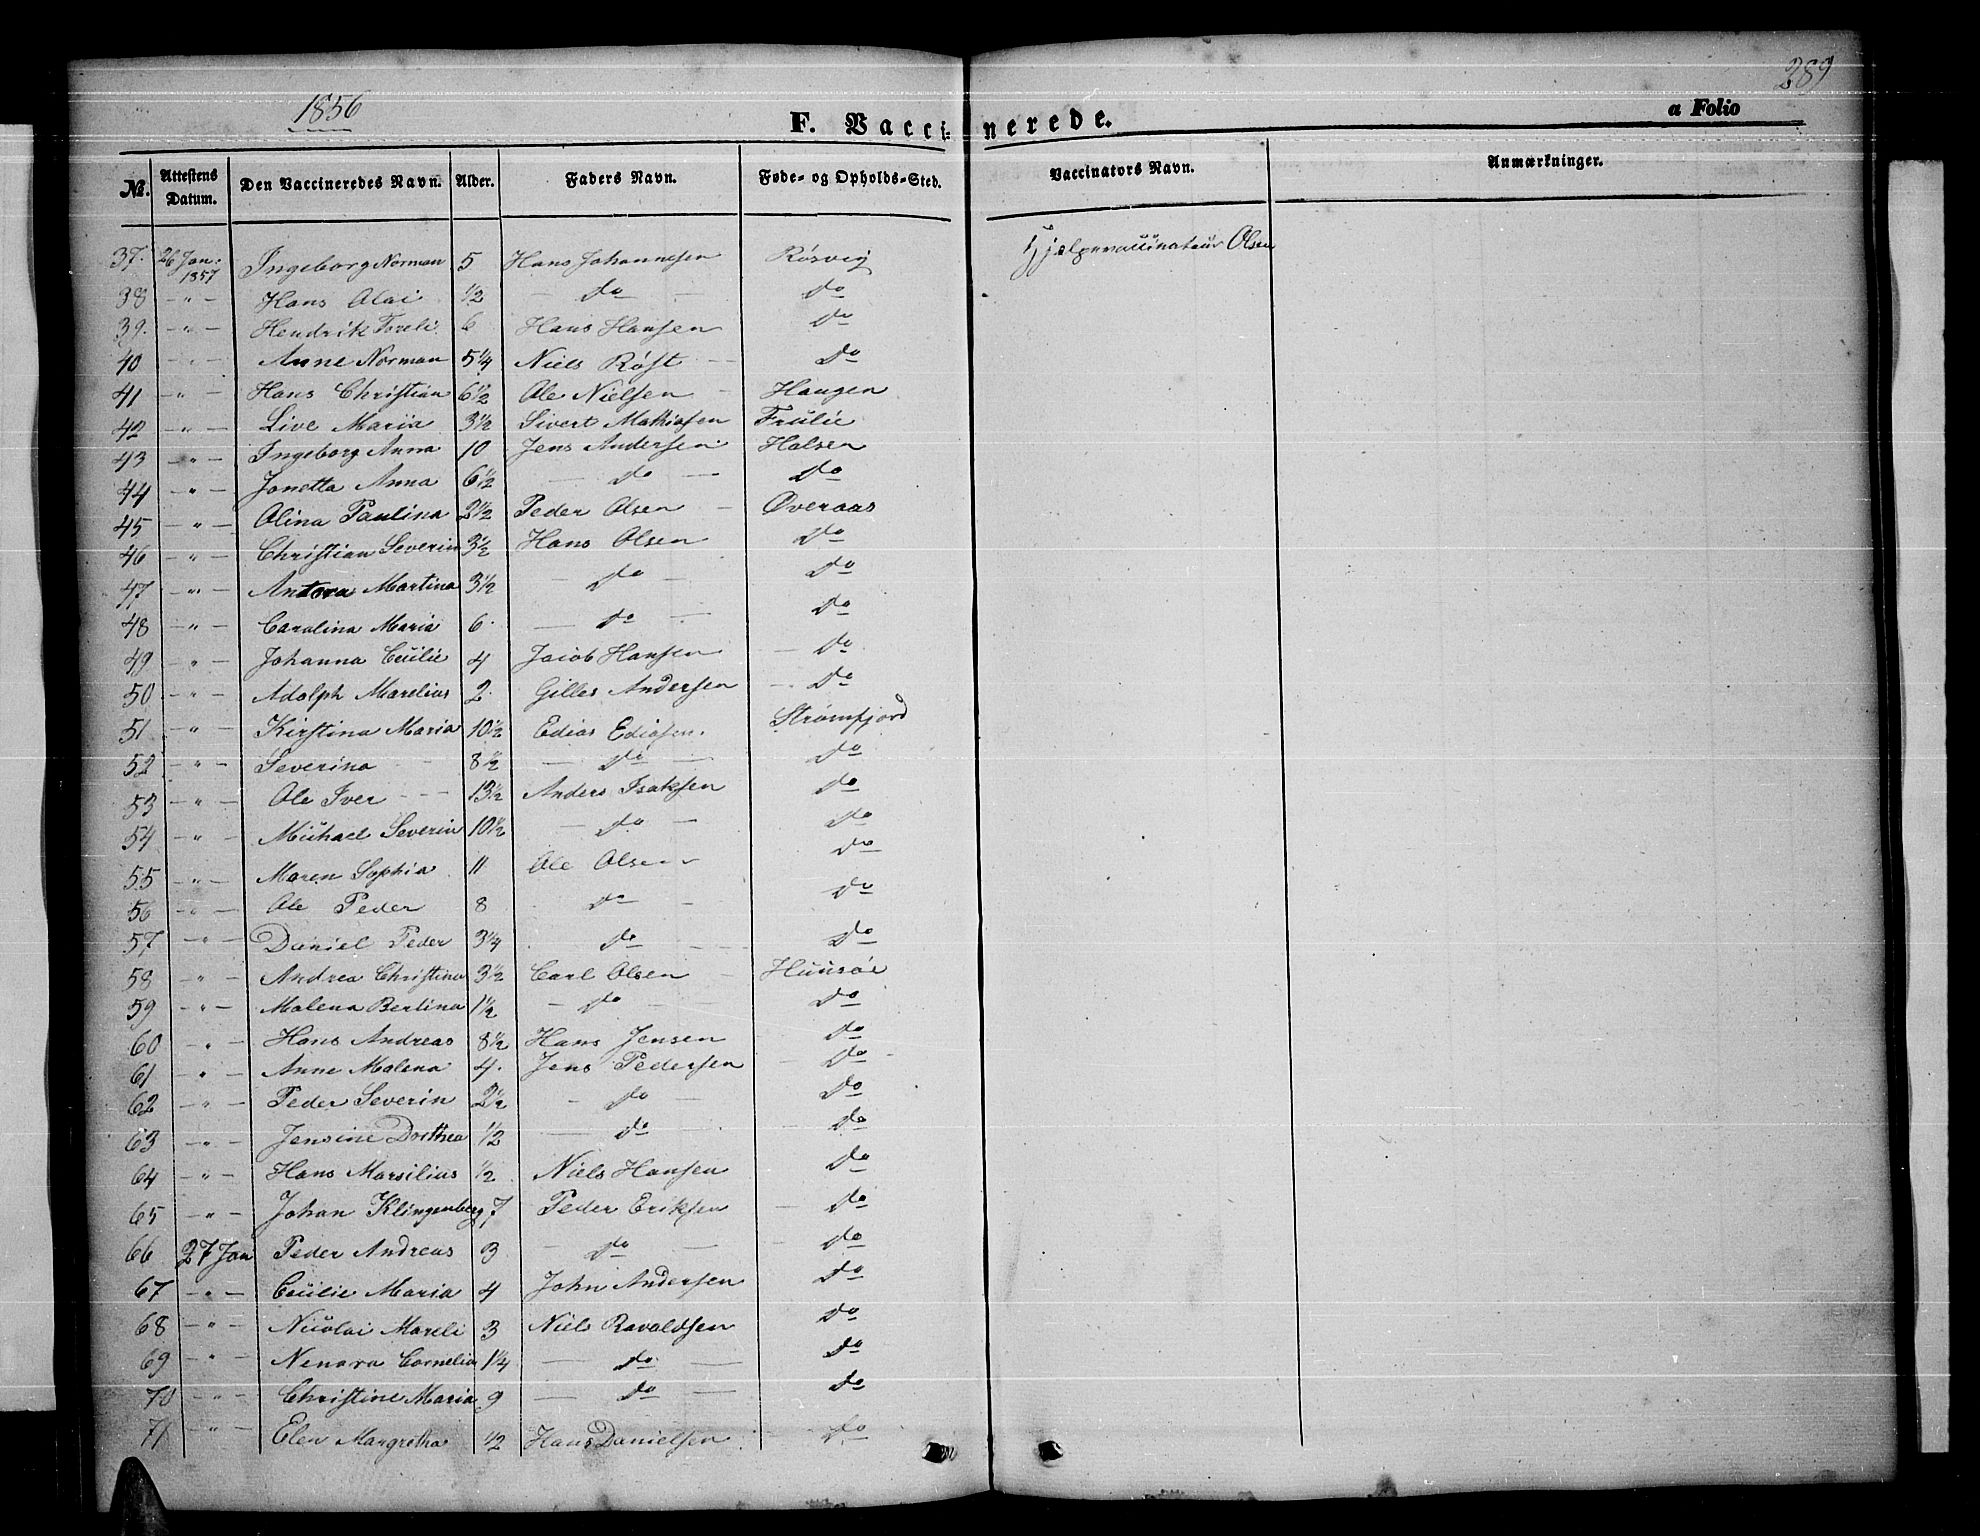 1856
289
F. Vaccinerede.
a Folio
№. Attestens Datum. Den Vaccineredes Navn. Alder. Faders Navn. Føde- og Opholds-Sted. Vaccinators Navn. Anmærkninger.
37. 26 Jan. 1857 Ingeborg Norman 5 Hans Johannesen Røsvig Hjelpevaccinateur Olsen
38 - " - Hans Olai 1/2 - Do - Do
39. - " - Hendrik Toreli 6 Hans Hansen Do
40 - " - Anne Norman 5 1/4 Niels Røst - Do
41 - " - Hans Christian 6 1/2 Ole Nielsen - Haugen
42 - " - Live Maria 3 1/2 Sivert Mathiasen Frulie
43 - " - Ingeborg Anna 10 Jens Andersen Halsen
44 - " - Jonetta Anna 6 1/2 - Do - Do
45 - " - Olina Paulina 2 1/2 Peder Olsen - Øveraas
46 - " - Christian Severin 3 1/2 Hans Olsen Do
47 - " - Antora Martina 3 1/2 - Do - Do
48 - " - Carolina Maria 6. - Do - Do
49 - " - Johanna Cecilie 4 Jacob Hansen - Do
50 - " - Adolph Marelius 2. Gilles Andersen - Do
51 - " - Kirstina Maria 10 1/2 Edias Ediasen. Strømfjord
52 - " - Severina - - 8 1/2 - Do - Do
53 - " - Ole Iver - - - 13 1/2 Anders Isaksen Do
54 - " - Michael Severin 10 1/2 - Do - Do
55 - " - Maren Sophia 11 Ole Olsen Do
56 - " - Ole Peder 8 - Do - Do
57 - " - Daniel Peder 3 1/4 Do - Do
58 - " - Andrea Christina 3 1/2 Carl Olsen - Huusøe
59 - " - Malena Berlina 1 1/2 - Do - Do
60 - " - Hans Andreas 8 1/2 Hans Jensen Do
61 - " - Anne Malena 4. Jens Pedersen - Do
62 - " - Peder Severin 2 1/2 - Do - Do
63 - " - Jensine Dorthea 1/2 - Do - Do
64 - " - Hans Marsilius 1/2 Niels Hansen Do
65 - " - Johan Klingenberg 7 Peder Eriksen - Do
66 27 Jan Peder Andreas 3 - Do - Do
67 - " - Cecilie Maria 4 John Andersen Do
68 - " - Nicolai Mareli 3 Niels Ravaldsen Do
69 - " - Nenara Cornelia 1 1/4 - Do - Do
70 - " - Christine Maria 9 - Do - Do
71 - " - Elen Margretha 1/2 Hans Danielsen - Do